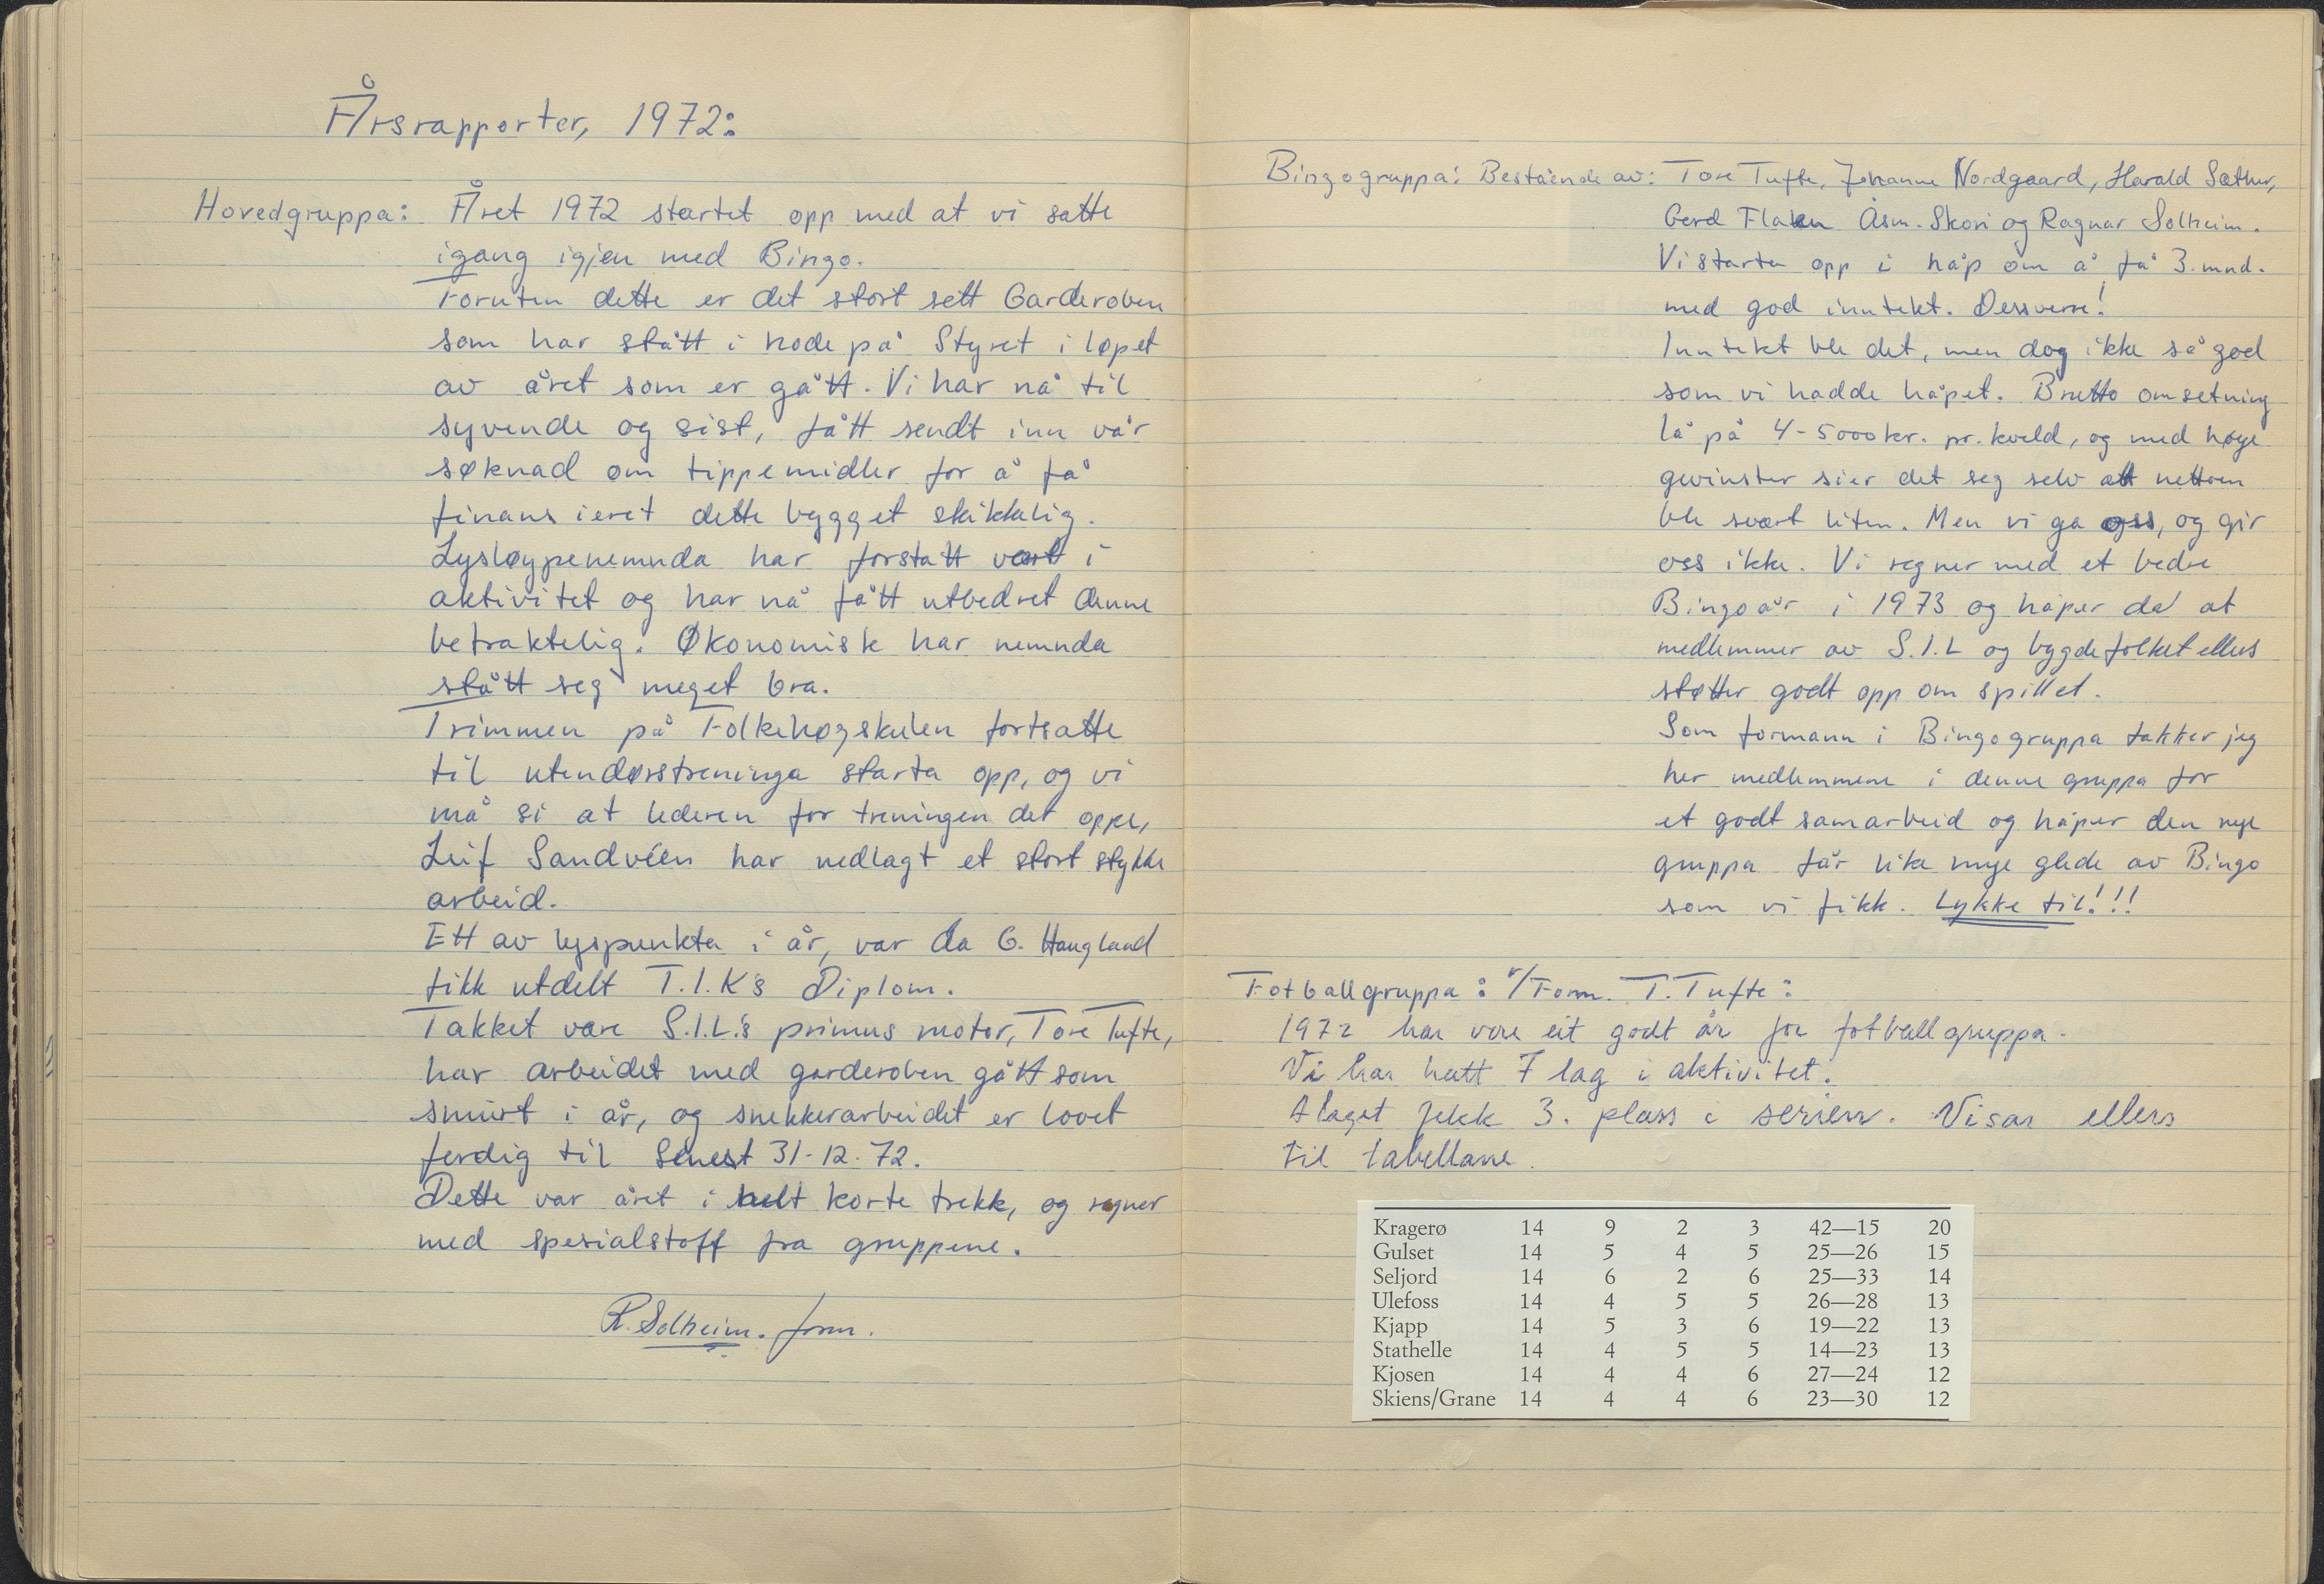 Årsrapporter, 1972:
Hovedgruppa: Året 1972 startet opp med at vi satte
igang igjen med Bingo.
Foruten dette er det stort sett Garderoben
som har stått i hode på Styret i løpet
av året som er gått. Vi har nå til
syvende og sist, fått sendt inn vår
søknad om tippemidler for å få
finansieret dette bygget skikkelig.
Lysløypenemnda har forstatt vært i
aktivitet og har nå fått utbedret denne
betraktelig. Økonomisk har nemnda
stått seg meget bra.
Trimmen på Folkehøgskulen fortsatte
til utendørstreninga starta opp, og vi
må si at lederen for treningen det oppe,
Leif Sandvéen har nedlagt et stort stykke
arbeid.
Ett av lyspunkta i år, var da G. Haugland
fikk utdelt T.I.K's Diplom.
Takket være S.I.L.'s primus motor, Tore Tufte,
har arbeidet med garderoben gått som
smurt i år, og snekkerarbeidet er lovet
ferdig til Senest 31-12-72.
Dette var året i helt korte trekk, og regner
med spesialstoff fra gruppene.
R. Solheim. form.
Bingogruppa: Bestående av: Tore Tufte, Johanne Nordgaard, Harald Sæther,
Gerd Flaten Åsm. Skori og Ragnar Solheim.
Vi starta opp i håp om å få 3. mnd.
med god inntekt. Dessverre!
Inntekt ble det, men dog ikke så god
som vi hadde håpet. Brutto omsetning
lå på 4-5000 kr. pr. kveld, og med høye
gevinster sier det seg selv att nettoen
ble svært liten. Men vi ga oss, og gir
oss ikke. Vi regner med et bedre
Bingoår i 1973 og håper da at
medlemmer av S.I.L og bygdefolket ellers
støtter godt opp om spillet.
Som formann i Bingogruppa takker jeg
her medlemmene i denne gruppa for
et godt samarbeid og håper den nye
gruppa får like mye glede av Bingo
som vi fikk. Lykke til!!!
Fotballgruppa: v/Form. T. Tufte:
1972 har vore eit godt år for fotballgruppa.
Vi har hatt 7 lag i aktivitet.
A laget fekk 3. plass i serien. Visar ellers
til tabellane.
Kragerø 14 9 2 3 42—15 20
Gulset 14 5 4 5 25—26 15
Seljord 14 6 2 6 25—33 14
Ulefoss 14 4 5 5 26—28 13
Kjapp 14 5 3 6 19—22 13
Stathelle 14 4 5 5 14—23 13
Kjosen 14 4 4 6 27—24 12
Skiens/Grane 14 4 4 6 23—30 12